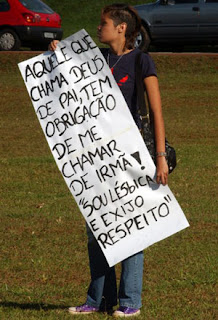 AQUELE QUE
CHAMA DEUS
DE PAI, TEM
OBRIGAÇÃO
DE ME
CHAMAR
DE IRMÃ!
"SOU LÉSBICA
E EXIJO
RESPEITO"